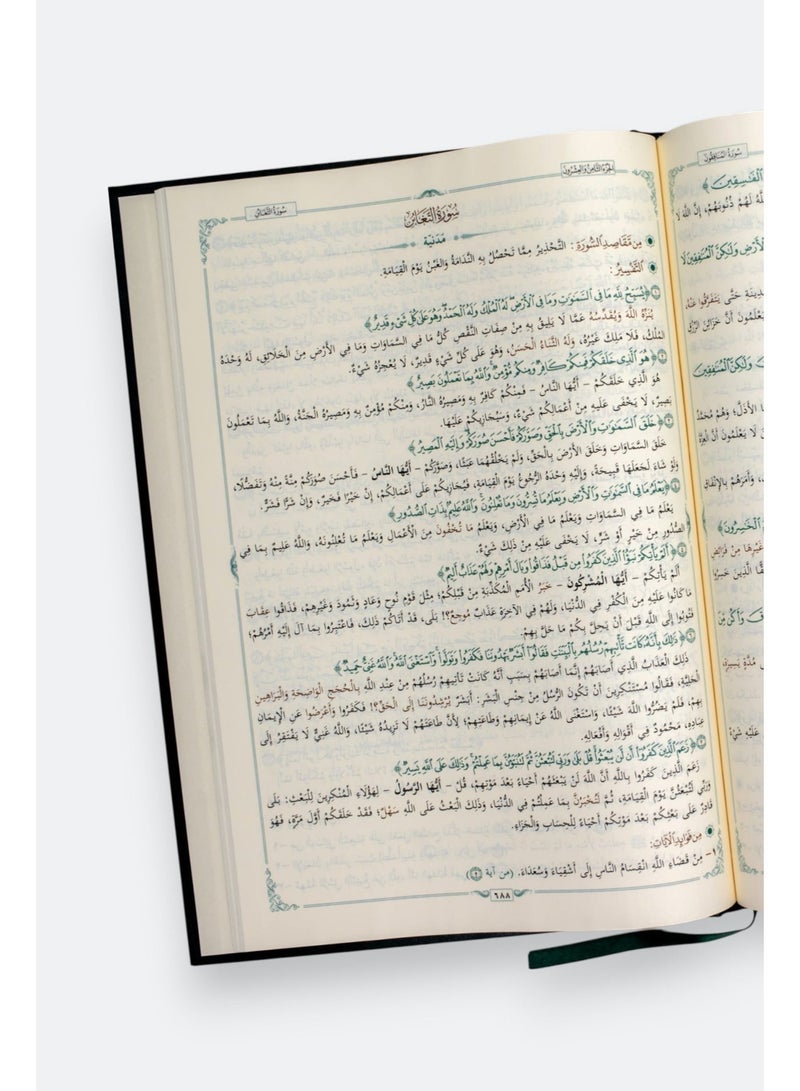 سورة المنافقون
الجزء الثامن والعشرون
سورة التغابن
سُورَةُ التَّغَابُنِ
مَدَنِيَّة
مِن مَّقَاصِدِ السُّورَةِ: التَّحْذِيرُ مِمَّا تَحْصُلُ بِهِ النَّدَامَةُ وَالغَبْنُ يَوْمَ القِيَامَةِ.
التَّفْسِيرُ:
﴿يُسَبِّحُ لِلَّهِ مَا فِي السَّمَٰوَٰتِ وَمَا فِي الْأَرْضِ لَهُ الْمُلْكُ وَلَهُ الْحَمْدُ وَهُوَ عَلَىٰ كُلِّ شَيْءٍ قَدِيرٌ﴾
يُنَزِّهُ اللهَ وَيُقَدِّسُهُ عَمَّا لَا يَلِيقُ بِهِ مِنْ صِفَاتِ النَّقْصِ كُلُّ مَا فِي السَّمَاوَاتِ وَمَا فِي الأَرْضِ مِنَ الخَلَائِقِ، لَهُ وَحْدَهُ
المُلْكُ، فَلَا مَلِكَ غَيْرُهُ، وَلَهُ الثَّنَاءُ الحَسَنُ، وَهُوَ عَلَى كُلِّ شَيْءٍ قَدِيرٌ، لَا يُعْجِزُهُ شَيْءٌ.
﴿هُوَ الَّذِي خَلَقَكُمْ فَمِنكُمْ كَافِرٌ وَمِنكُم مُّؤْمِنٌ وَاللَّهُ بِمَا تَعْمَلُونَ بَصِيرٌ﴾
هُوَ الَّذِي خَلَقَكُمْ – أَيُّهَا النَّاسُ – فَمِنْكُمْ كَافِرٌ بِهِ وَمَصِيرُهُ النَّارُ، وَمِنْكُمْ مُؤْمِنٌ بِهِ وَمَصِيرُهُ الجَنَّةُ، وَاللهُ بِمَا تَعْمَلُونَ
بَصِيرٌ، لَا يَخْفَى عَلَيْهِ مِنْ أَعْمَالِكُمْ شَيْءٌ، وَسَيُجَازِيكُمْ عَلَيْهَا.
﴿خَلَقَ السَّمَٰوَٰتِ وَالْأَرْضَ بِالْحَقِّ وَصَوَّرَكُمْ فَأَحْسَنَ صُوَرَكُمْ وَإِلَيْهِ الْمَصِيرُ﴾
خَلَقَ السَّمَاوَاتِ وَخَلَقَ الأَرْضَ بِالحَقِّ، وَلَمْ يَخْلُقْهُمَا عَبَثًا، وَصَوَّرَكُمْ – أَيُّهَا النَّاسُ – فَأَحْسَنَ صُوَرَكُمْ مِنَّةً مِنْهُ وَتَفَضُّلًا،
وَلَوْ شَاءَ لَجَعَلَهَا قَبِيحَةً، وَإِلَيْهِ وَحْدَهُ الرُّجُوعُ يَوْمَ القِيَامَةِ، فَيُجَازِيكُمْ عَلَى أَعْمَالِكُمْ، إِنْ خَيْرًا فَخَيْرٌ، وَإِنْ شَرًّا فَشَرٌّ.
﴿يَعْلَمُ مَا فِي السَّمَٰوَٰتِ وَالْأَرْضِ وَيَعْلَمُ مَا تُسِرُّونَ وَمَا تُعْلِنُونَ وَاللَّهُ عَلِيمٌ بِذَاتِ الصُّدُورِ﴾
يَعْلَمُ مَا فِي السَّمَاوَاتِ وَيَعْلَمُ مَا فِي الأَرْضِ، وَيَعْلَمُ مَا تُخْفُونَ مِنَ الأَعْمَالِ وَيَعْلَمُ مَا تُعْلِنُونَهُ، وَاللهُ عَلِيمٌ بِمَا فِي
الصُّدُورِ مِنْ خَيْرٍ أَوْ شَرٍّ، لَا يَخْفَى عَلَيْهِ مِنْ ذَلِكَ شَيْءٌ.
﴿أَلَمْ يَأْتِكُمْ نَبَؤُا الَّذِينَ كَفَرُوا مِن قَبْلُ فَذَاقُوا وَبَالَ أَمْرِهِمْ وَلَهُمْ عَذَابٌ أَلِيمٌ﴾
أَلَمْ يَأْتِكُمْ – أَيُّهَا المُشْرِكُونَ – خَبَرُ الأُمَمِ المُكَذِّبَةِ مِنْ قَبْلِكُمْ؛ مِثْلُ قَوْمِ نُوحٍ وَعَادٍ وَثَمُودَ وَغَيْرِهِمْ، فَذَاقُوا عِقَابَ
مَا كَانُوا عَلَيْهِ مِنَ الكُفْرِ فِي الدُّنْيَا، وَلَهُمْ فِي الآخِرَةِ عَذَابٌ مُوجِعٌ؟! بَلَى، قَدْ أَتَاكُمْ ذَلِكَ، فَاعْتَبِرُوا بِمَا آلَ إِلَيْهِ أَمْرُهُمْ؛
فَتُوبُوا إِلَى اللهِ قَبْلَ أَنْ يَحِلَّ بِكُمْ مَا حَلَّ بِهِمْ.
﴿ذَٰلِكَ بِأَنَّهُ كَانَت تَّأْتِيهِمْ رُسُلُهُم بِالْبَيِّنَٰتِ فَقَالُوا أَبَشَرٌ يَهْدُونَنَا فَكَفَرُوا وَتَوَلَّوا وَّاسْتَغْنَى اللَّهُ وَاللَّهُ غَنِيٌّ حَمِيدٌ﴾
ذَلِكَ العَذَابُ الَّذِي أَصَابَهُمْ إِنَّمَا أَصَابَهُمْ بِسَبَبِ أَنَّهُ كَانَتْ تَأْتِيهِمْ رُسُلُهُمْ مِنْ عِنْدِ اللهِ بِالحُجَجِ الوَاضِحَةِ وَالبَرَاهِينِ
الجَلِيَّةِ، فَقَالُوا مُسْتَنْكِرِينَ أَنْ تَكُونَ الرُّسُلُ مِنْ جِنْسِ البَشَرِ: أَبَشَرٌ يُرْشِدُونَنَا إِلَى الحَقِّ؟! فَكَفَرُوا وَأَعْرَضُوا عَنِ الإِيمَانِ
بِهِمْ، فَلَمْ يَضُرُّوا اللهَ شَيْئًا، وَاسْتَغْنَى اللهُ عَنْ إِيمَانِهِمْ وَطَاعَتِهِمْ؛ لِأَنَّ طَاعَتَهُمْ لَا تَزِيدُهُ شَيْئًا، وَاللهُ غَنِيٌّ لَا يَفْتَقِرُ إِلَى
عِبَادِهِ، مَحْمُودٌ فِي أَقْوَالِهِ وَأَفْعَالِهِ.
﴿زَعَمَ الَّذِينَ كَفَرُوا أَن لَّن يُبْعَثُوا قُلْ بَلَىٰ وَرَبِّي لَتُبْعَثُنَّ ثُمَّ لَتُنَبَّؤُنَّ بِمَا عَمِلْتُمْ وَذَٰلِكَ عَلَى اللَّهِ يَسِيرٌ﴾
زَعَمَ الَّذِينَ كَفَرُوا بِاللهِ أَنَّ اللهَ لَنْ يَبْعَثَهُمْ أَحْيَاءً بَعْدَ مَوْتِهِمْ، قُلْ – أَيُّهَا الرَّسُولُ – لِهَؤُلَاءِ المُنْكِرِينَ لِلْبَعْثِ: بَلَى
وَرَبِّي لَتُبْعَثُنَّ يَوْمَ القِيَامَةِ، ثُمَّ لَتُخْبَرُنَّ بِمَا عَمِلْتُمْ فِي الدُّنْيَا، وَذَلِكَ البَعْثُ عَلَى اللهِ سَهْلٌ؛ فَقَدْ خَلَقَكُمْ أَوَّلَ مَرَّةٍ، فَهُوَ
قَادِرٌ عَلَى بَعْثِكُمْ بَعْدَ مَوْتِكُمْ أَحْيَاءً لِلْحِسَابِ وَالجَزَاءِ.
مِن فَوَائِدِ الْآيَاتِ:
١- مِنْ قَضَاءِ اللهِ انْقِسَامُ النَّاسِ إِلَى أَشْقِيَاءَ وَسُعَدَاءَ. (من آية ٢)
٦٨٨